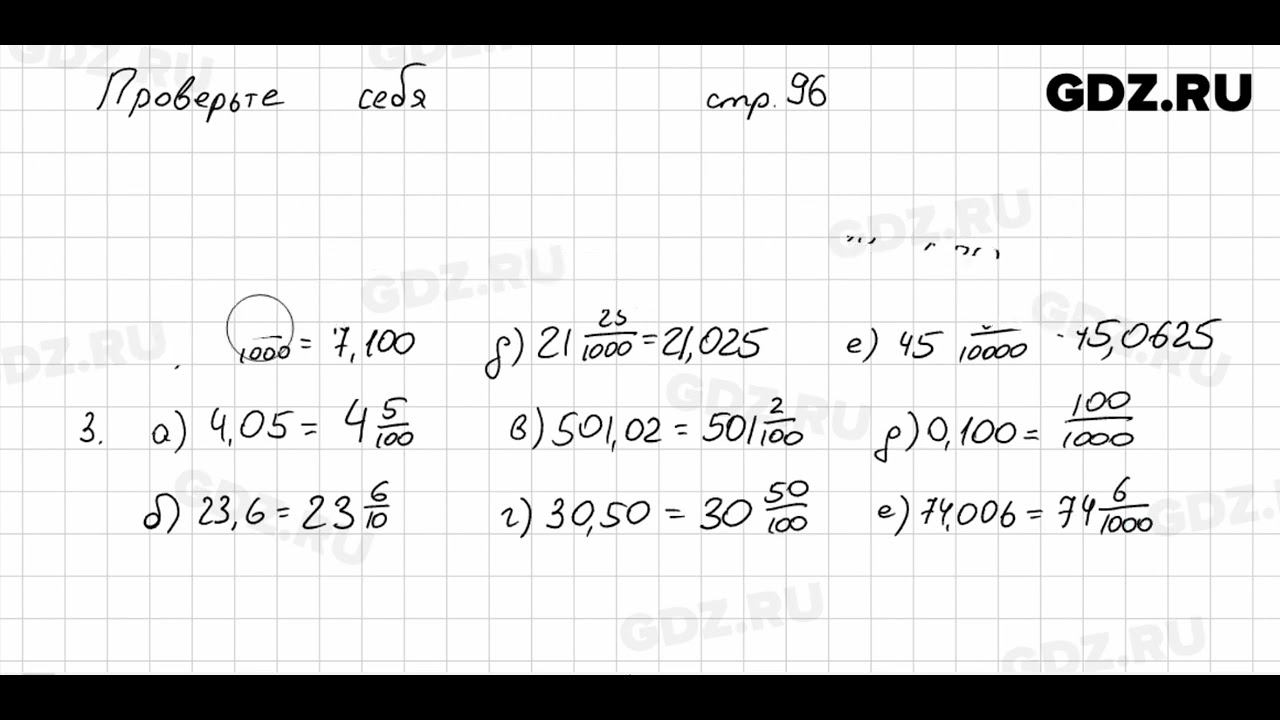 Проверьте себя стр. 96 GDZ.RU
1000 = 7,100 д) 21 25/1000 = 21,025 е) 45 /10000 45,0625
3. а) 4,05 = 4 5/100 в) 501,02 = 501 2/100 д) 0,100 = 100/1000
б) 23,6 = 23 6/10 г) 30,50 = 30 50/100 е) 74,006 = 74 6/1000